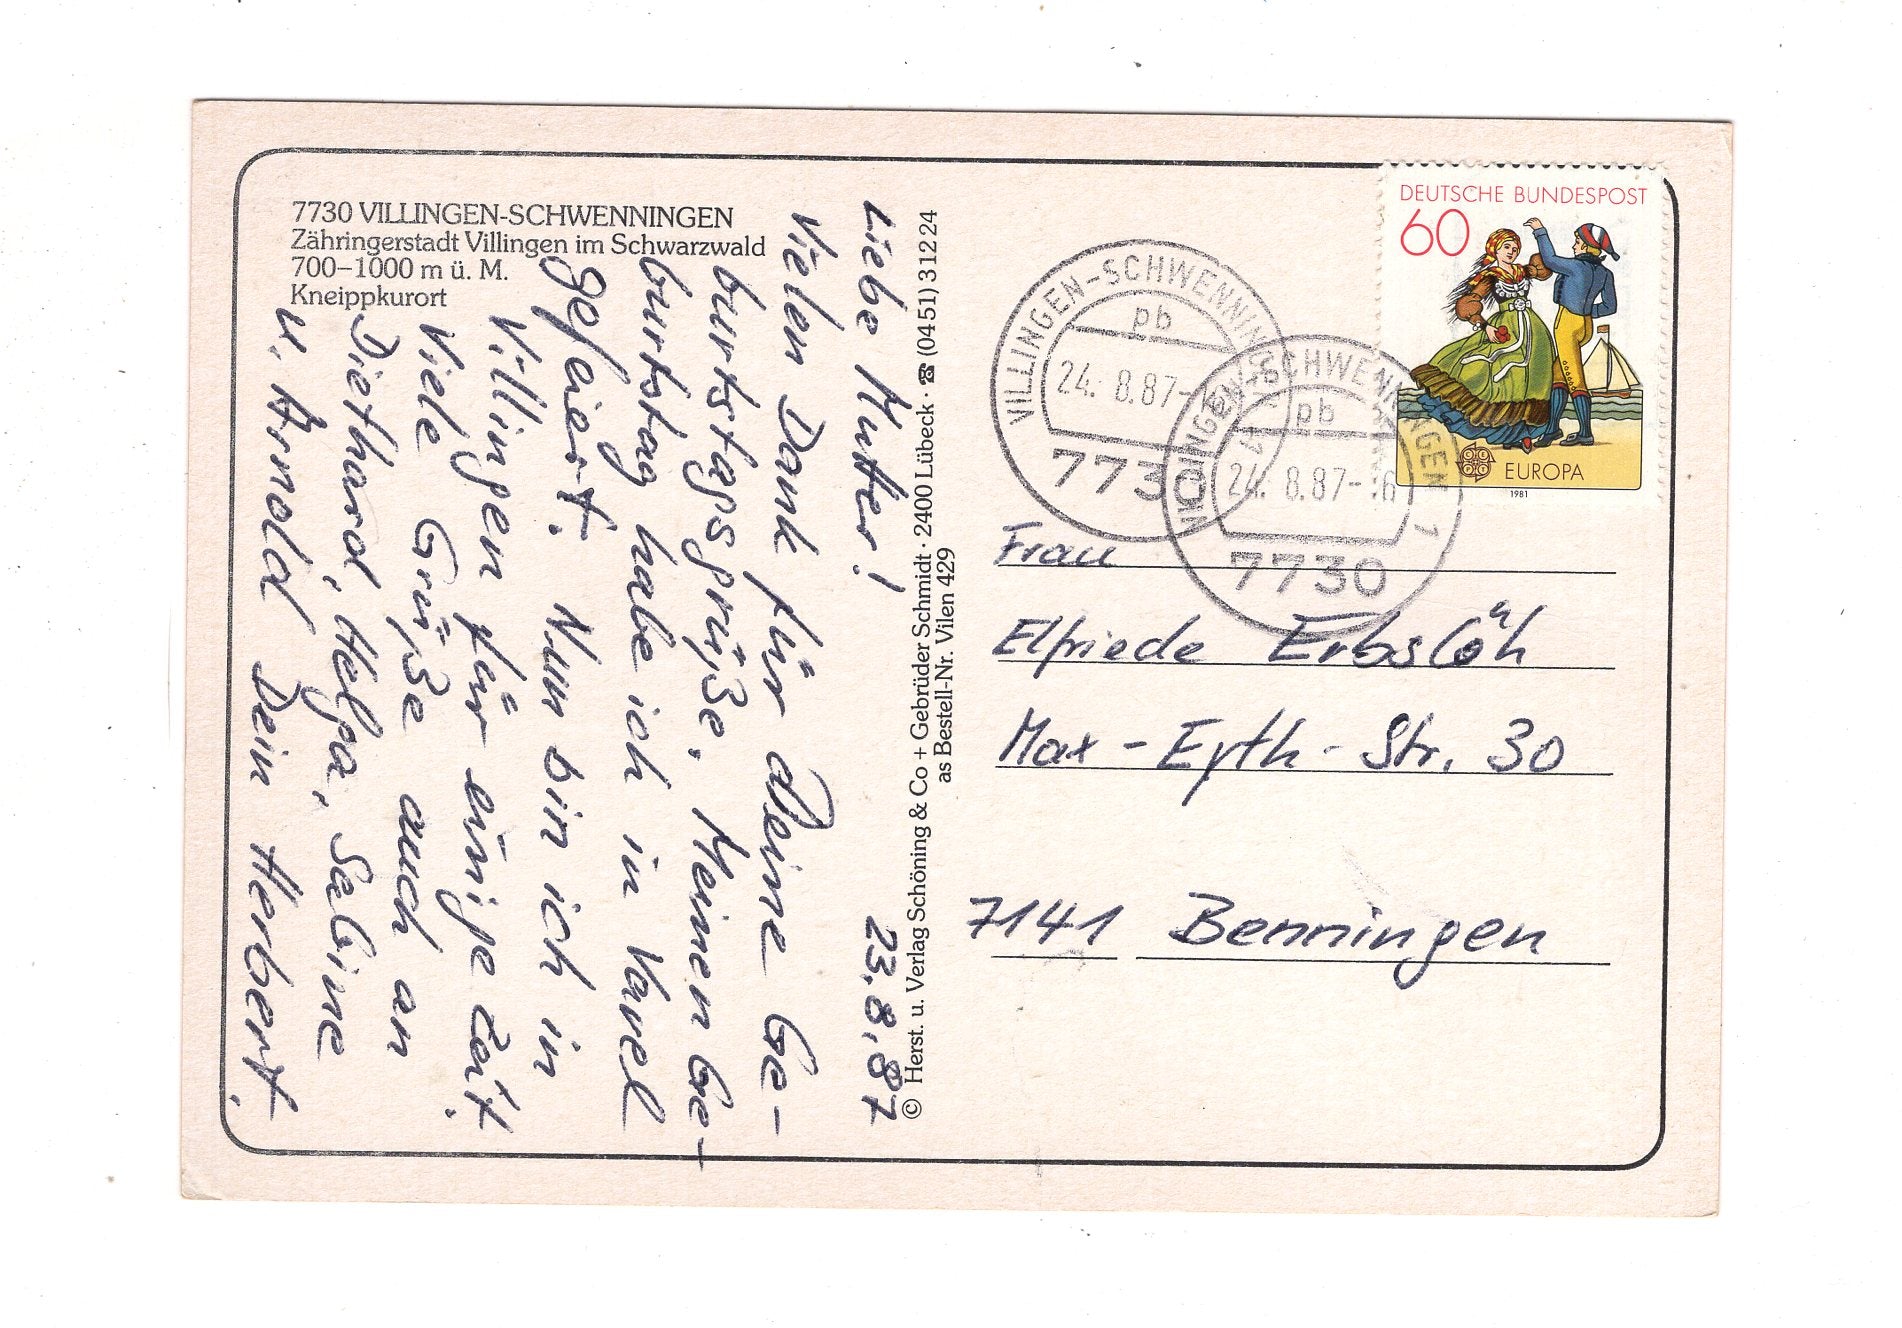 7730 VILLINGEN-SCHWENNINGEN
Zähringerstadt Villingen im Schwarzwald
700–1000 m ü. M.
Kneippkurort
23.8.87
Liebe Mutter!
Vielen Dank für deine Ge-
burtstagsgrüße. Meinen Ge-
burtstag habe ich in Varel
gefeiert. Nun bin ich in
Villingen für einige Zeit.
Viele Grüße auch an
Diethard, Helga, Sabine
u. Arnold Dein Herbert.
© Herst. u. Verlag Schöning & Co + Gebrüder Schmidt · 2400 Lübeck · ☎ (0451) 31224
as Bestell-Nr. Vilen 429
DEUTSCHE BUNDESPOST
60
EUROPA
1981
VILLINGEN-SCHWENNINGEN 1
pb
24. 8.87-
7730
VILLINGEN-SCHWENNINGEN 1
pb
24. 8.87-16
7730
Frau
Elfriede Erbslöh
Max-Eyth-Str. 30
7141 Benningen